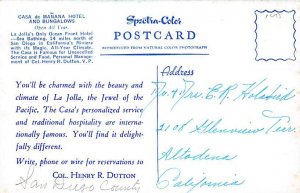 CASA de MAÑANA HOTEL
AND BUNGALOWS
Open All Year.
La Jolla's Only Ocean Front Hotel
—Sea Bathing. 14 miles north of
San Diego in California's Riviera
with its Magic, All-Year Climate.
The Casa is Famous for Unexcelled
Service and Food. Personal Management
of Col. Henry R. Dutton, V.P.
Spectra-Color
POSTCARD
REPRODUCED FROM NATURAL COLOR PHOTOGRAPH
Address
You'll be charmed with the beauty and
climate of La Jolla, the Jewel of the
Pacific. The Casa's personalized service
and traditional hospitality are inter-
nationally famous. You'll find it delight-
fully different.
Write, phone or wire for reservations to
COL. HENRY R. DUTTON
San Diego County
E.R.
2108 Glenview Terr.
Altadena
California